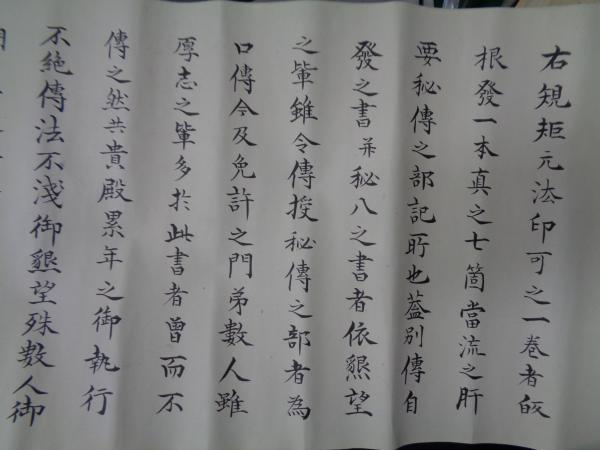 右規矩元法印可之一巻者
根發一本真之七箇當流之肝
要秘傳之部記所也蓋別傳自
發之書并秘八之書者依懇望
之輩雖令傳授秘傳之部者為
口傳今及免許之門弟數人雖
厚志之輩多於此書者曽而不
傳之然共貴殿累年之御執行
不絶傳法不淺御懇望殊數人御